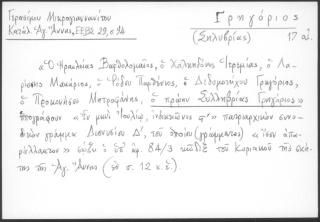 Γερασίμου Μικραγιαννανίτου
Κατάλ. Ἁγ. Ἄννης, ΕΕΒΣ 29, σ. 94
Γρηγόριος
(Σηλυβρίας)
17 αἰ.
«Ὁ Ἡρακλείας Βαρθολομαῖος, ὁ Χαλκηδόνος Ἱερεμίας, ὁ Λα-
ρίσσης Μακάριος, ὁ Ῥόδου Παρθένιος, ὁ Διδυμοτείχου Γρηγόριος,
ὁ Προικονήσου Μητροφάνης, ὁ πρώην Συλληβρίας Γρηγόριος»
ὑπογράφουν «Ἐν μηνὶ Ἰουλίῳ, ἰνδικτιῶνος» πατριαρχικὸν συνο-
δικὸν γράμμα Διονυσίου Δ', τοῦ ὁποίου (γράμματος) «ἴσον ἀπα-
ράλλακτον» σῴζει ὁ ὑπ' ἀρ. 84/3 κῶδιξ τοῦ Κυριακοῦ τῆς σκή-
της τῆς Ἁγ. Ἄννης (σ. 12 κ.ἑ.).